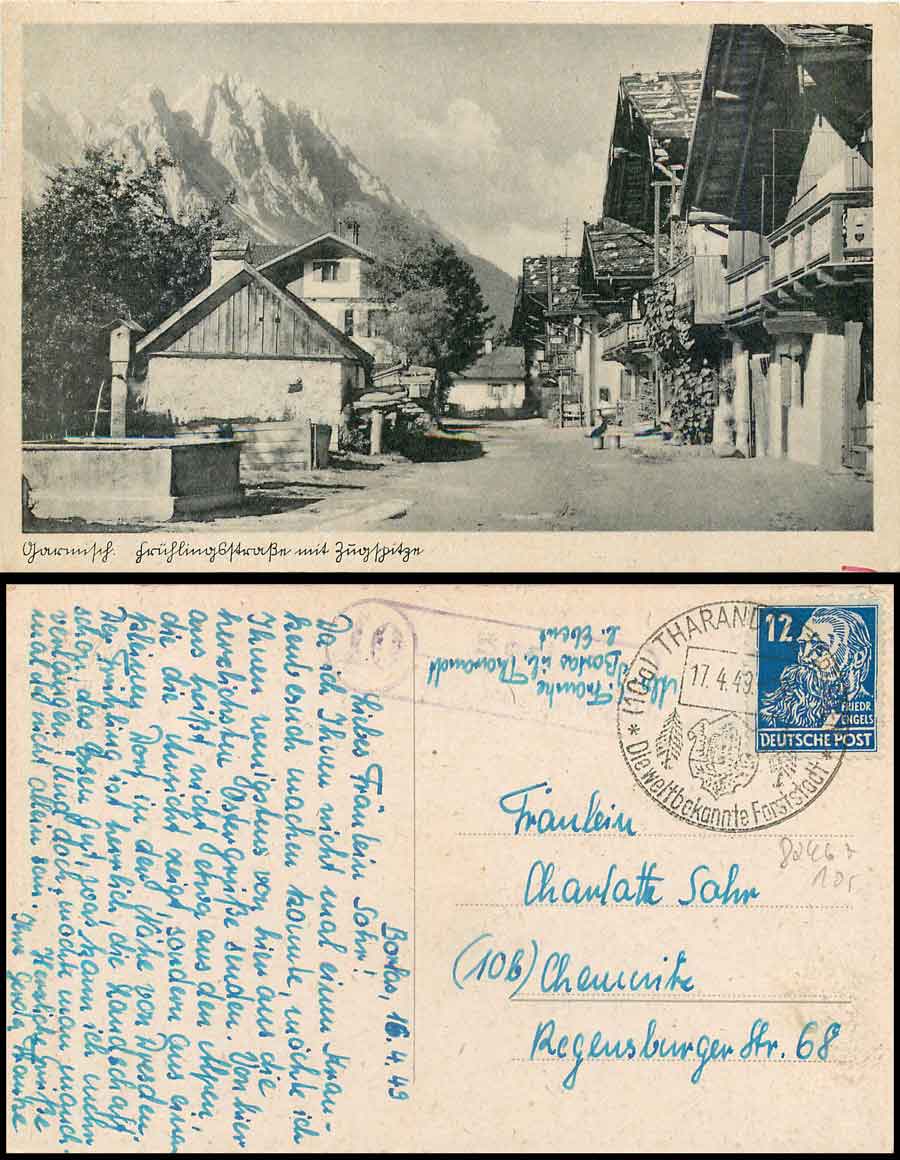 Garmisch. Frühlingsstraße mit Zugspitze
Borlas, 16.4.49
Liebes Fräulein Sahr!
Da ich Ihnen nicht mal einen
besuch machen konnte, möchte ich
Ihnen wenigstens von hier aus die
herzlichsten Ostergrüße senden. Von hier
aus heißt nicht etwa aus den Alpen,
die die Ansicht zeigt, sondern aus einem
kleinen Dorf in der Nähe von Dresden.
Der Frühling ist herrlich, die Landschaft
schön, das Essen gut, was kann ich mehr
verlangen. Und doch möchte man manch-
mal nicht allein sein. Herzliche Grüße
Ihre
Borlas üb. Tharandt
b. Ebert
20
(10a) THARANDT
17.4.49
* Die weltbekannte Forststadt *
12
FRIEDR.
ENGELS
DEUTSCHE POST
Fräulein
Charlotte Sahr
(10b) Chemnitz
Regensburger Str. 68